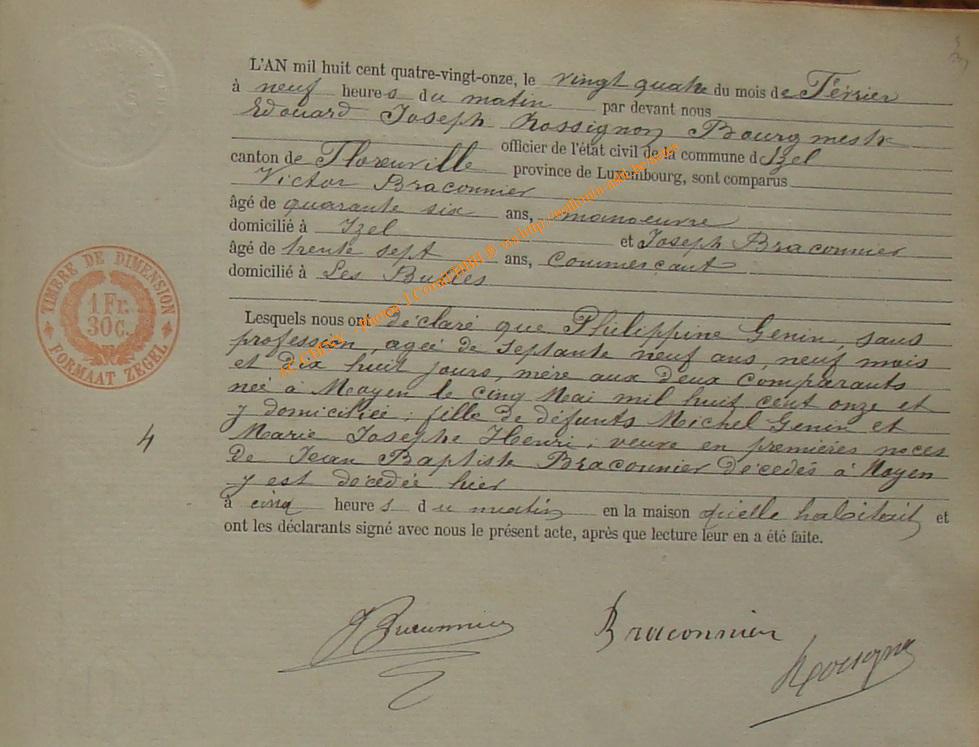 L'AN mil huit cent quatre-vingt-onze, le vingt quatre du mois de Février
à neuf heures du matin par devant nous
Edouard Joseph Rossignon Bourgmestre
officier de l'état civil de la commune d'Izel
canton de Florenville province de Luxembourg, sont comparus
Victor Braconnier
âgé de quarante six ans, manoeuvre
domicilié à Izel et Joseph Braconnier
âgé de trente sept ans, commerçant
domicilié à Les Bulles
Lesquels nous ont déclaré que Philippine Genin, sans
profession, agée de septante neuf ans, neuf mois
et dix huit jours, mère aux deux comparants
née à Moyen le cinq Mai mil huit cent onze et
y domiciliée ; fille de défunts Michel Genin et
Marie Josephe Henri ; veuve en premières noces
de Jean Baptiste Braconnier décédés à Moyen
y est décédée hier
à cinq heures du matin en la maison qu'elle habitait et
ont les déclarants signé avec nous le présent acte, après que lecture leur en a été faite.
TIMBRE DE DIMENSION
1 Fr.
30 c.
FORMAAT ZEGEL
4
J Braconnier
Braconnier
Rossignon